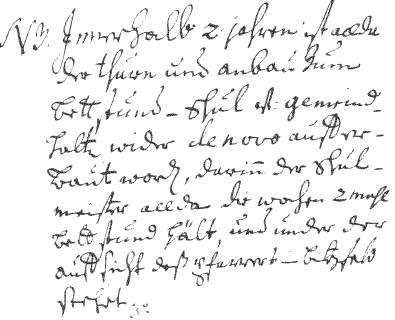 NB. Innerhalb 2. jahren ist allda
der thurn und anbau zum
bettstund- Schul u. gemeind-
halt wider de novo aufer-
baut word, darin der Schul-
meister allda die wochen 2 mahl
bettstund hält, und under der
aufsicht deß Pfarrers - bitzfeld
stehet.